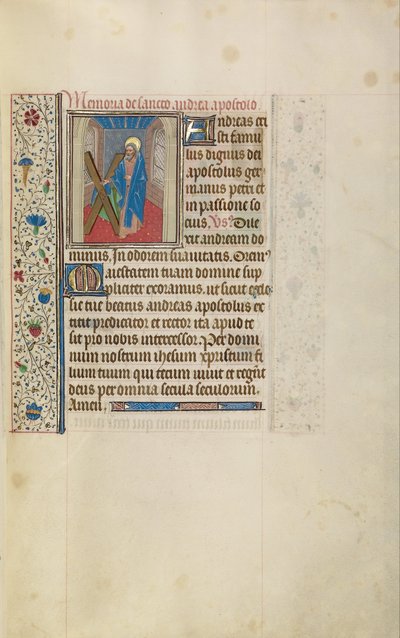 Memoria de sancto andrea apostolo.
Andreas cri
sti famu
lus dignus dei
apostolus ger
manus petri et
in passione so
cius. Vs. Dile
xit andream do
minus, In odorem suauitatis. Orem9
Maiestatem tuam domine sup
pliciter exoramus. ut sicut eccle
sie tue beatus andreas apostolus ex
titit predicator et rector ita apud te
sit pro nobis intercessor. Per domi
num nostrum ihesum xpristum fi
lium tuum qui tecum uiuit et regnat
deus per omnia secula seculorum.
Amen.